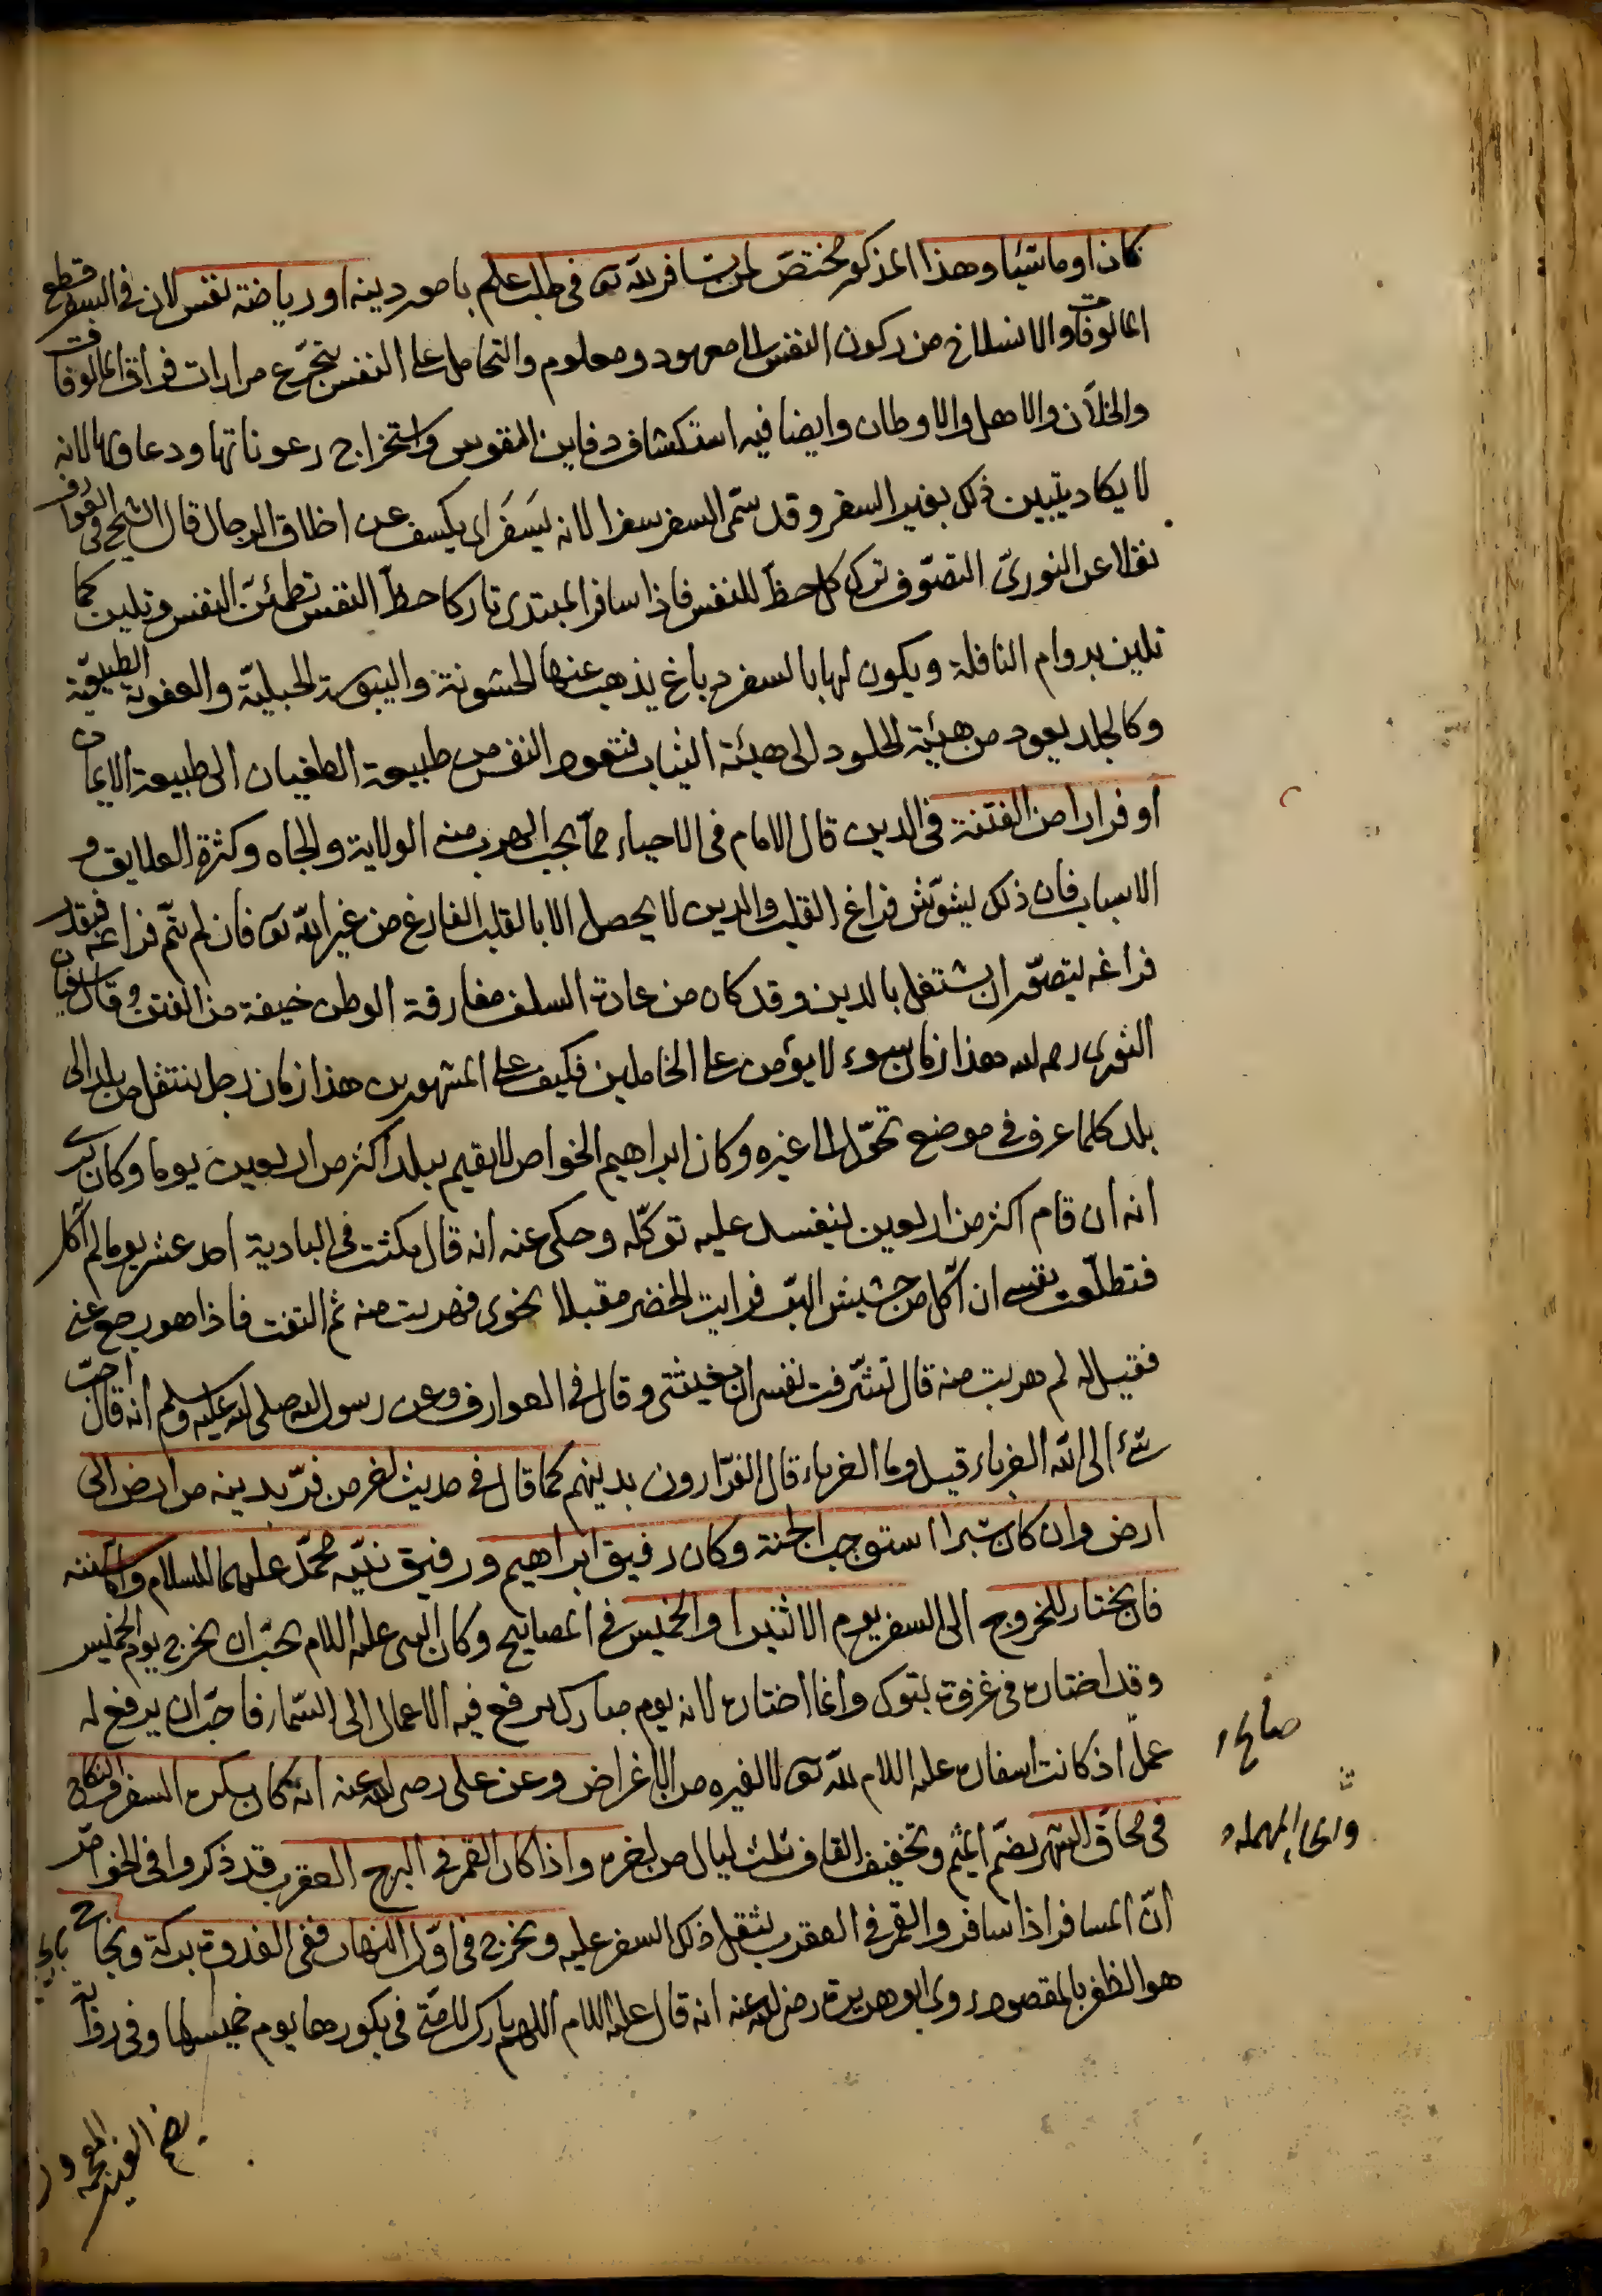 كان او ماشيا وهذا المذكور مختص لمن يسافر لله تع في طلب علم بامور دينه او رياضة نفس لان في السفر قطع
المالوفات والانسلاخ من ركون النفس الى معهود ومعلوم والتحامل على النفس بتجرّع مرارات فراق المالوفات
والخلّان والاهل والاوطان وايضا فيه استكشاف دفاين النفوس واستخراج رعوناتها ودعاويها لانه
لا يكاد يتبين ذلك بغير السفر وقد سمّى السفر سفرا لانه يَسفَر اى يكسف عن اخلاق الرجال قال الشيخ في العوارف
نقلا عن النوريّ التصوّف ترك كل حظّ للنفس فاذا سافر المبتدى تاركا حظّ النفس تطمئنّ النفس وتلين كما
تلين بدوام النافلة ويكون لها بالسفر دباغ يذهب عنها الخشونة واليبوسة الجبليّة والعفونة الطبيعيّة
وكالجلد يعود من هيئة الجلود الى هيئة الثياب فتعود النفس من طبيعة الطغيان الى طبيعة الايمان
او فرارا من الفتنة في الدين قال الامام في الاحياء ممّا يجب الهرب منه الولاية والجاه وكثرة العلايق و
الاسباب فان ذلك يشوّش فراغ القلب والدين لا يحصل الا بالقلب الفارغ من غير الله تع فان لم يتمّ فراغه فبقدر
فراغه يتصوّر ان يشتغل بالدين وقد كان من عادة السلف مفارقة الوطن خيفة من الفتن وقال سفيان
الثوري رحمه الله هذا زمان سوء لا يؤمن على الخاملين فكيف على المشهورين هذا زمان رجل ينتقل من بلد الى
بلد كلما عرف في موضع تحوّل الى غيره وكان ابراهيم الخواص لا يقيم ببلد اكثر من اربعين يوما وكان يرى
انه ان قام اكثر من اربعين يفسد عليه توكّله وحكى عنه انه قال مكثت في البادية احد عشر يوما لم آكل
فتطلّعت نفسى ان آكل من حشيش البرّ فرايت الخضر مقبلا نحوى فهربت منه ثم التفت فاذا هو رجع عنى
فقيل له لم هربت منه قال تشرّفت نفسى ان يغيثنى وقال في العوارف وعن رسول الله صلى الله عليه وسلم انه قال احبّ
شئ الى الله الغرباء قيل وما الغرباء قال الفرّارون بدينهم كما قال في حديث اخر من فرّ بدينه من ارض الى
ارض وان كان شبرا استوجب الجنة وكان رفيق ابراهيم ورفيق نبيّه محمّد عليهما السلام
فان يختار للخروج الى السفر يوم الاثنين او الخميس في المصابيح وكان النبى عليه السلام يحبّ ان يخرج يوم الخميس
وقد اختاره في غزوة تبوك وانما اختاره لانه يوم مبارك يرفع فيه الاعمال الى السّماء فاحبّ ان يرفع له
عمل اذ كانت اسفاره عليه السلام لله تع لا لغيره من الاغراض وعن على رضى الله عنه انه كان يكره السفر والنكاح
في محاق الشهر بضمّ الميم وتخفيف القاف ثلث ليال من اخره واذا كان القمر في البرج العقرب قد ذكروا في الخواصّ
انّ المسافر اذا سافر والقمر في العقرب يثقل ذلك السفر عليه ويخرج في اوّل النهار ففي الغدوة بركة ونجاح
هو الظفر بالمقصود روى ابو هريرة رضى الله عنه انه قال عليه السلام اللهم بارك لامّتى في بكورها يوم خميسها وفي رواية
صالح
المهملة